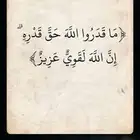 ﴿مَا قَدَرُوا اللَّهَ حَقَّ قَدْرِهِ ۗ
إِنَّ اللَّهَ لَقَوِيٌّ عَزِيزٌ﴾